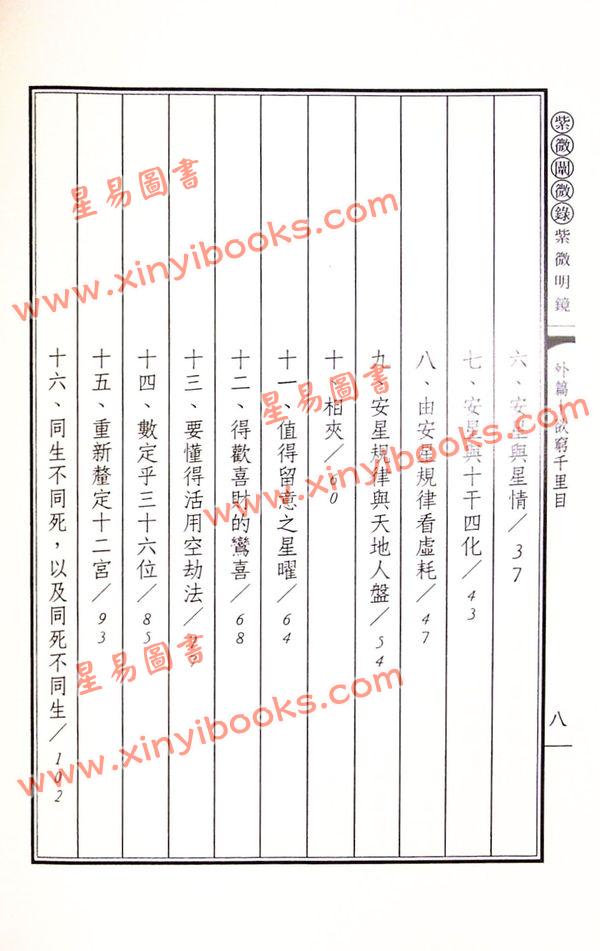 紫微闡微錄 紫微明鏡
外篇 欲窮千里目
八
六、安星與星情/37
七、安星與十干四化/43
八、由安星規律看虛耗/47
九、安星規律與天地人盤/54
十、相夾/60
十一、值得留意之星曜/64
十二、得歡喜財的鸞喜/68
十三、要懂得活用空劫法/
十四、數定乎三十六位/85
十五、重新釐定十二宮/93
十六、同生不同死，以及同死不同生/102
星易圖書
www.xinyibooks.com
星易圖書
www.xinyibooks.com
星易圖書
www.xinyibooks.com